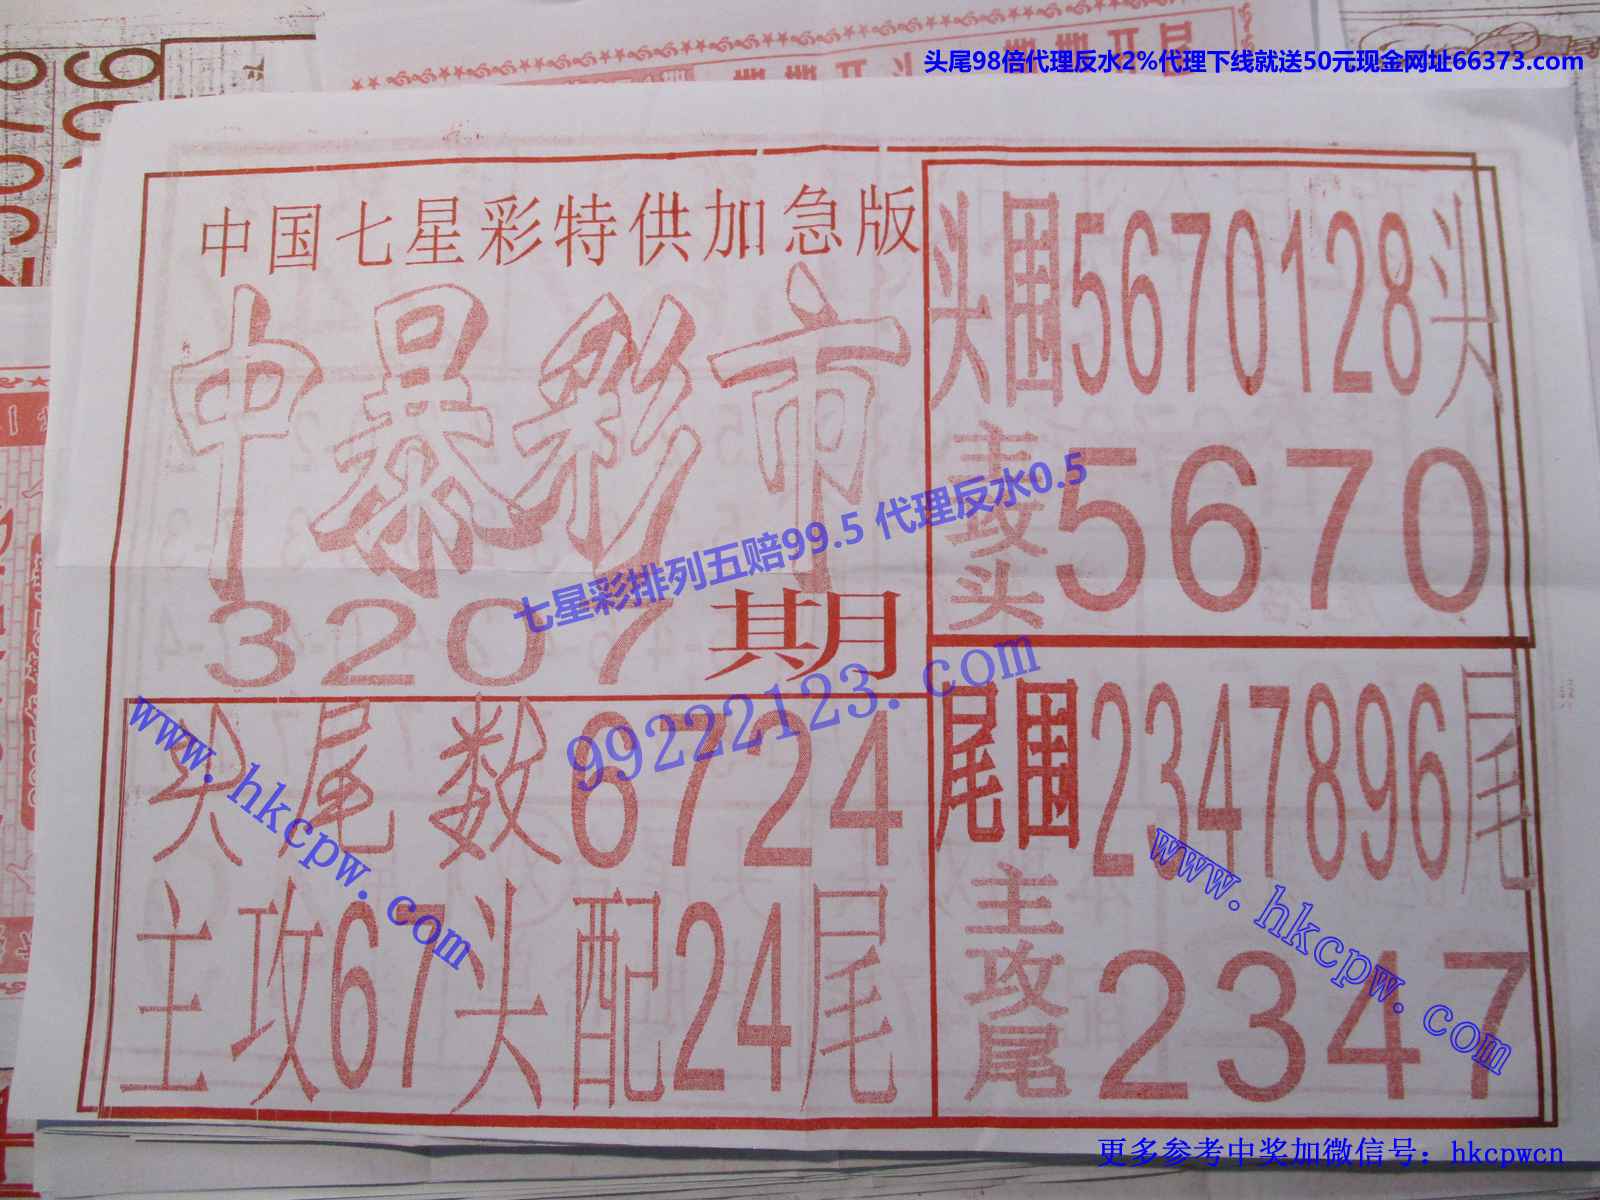 头尾98倍代理反水2%代理下线就送50元现金网址66373.com
中国七星彩特供加急版
中暴彩市
3207期
头尾数6724
主攻67头配24尾
头围5670128头
主攻头5670
尾围2347896尾
主攻尾2347
七星彩排列五赔99.5 代理反水0.5
99222123.com
www.hkcpw.com
www.hkcpw.com
更多参考中奖加微信号：hkcpwcn